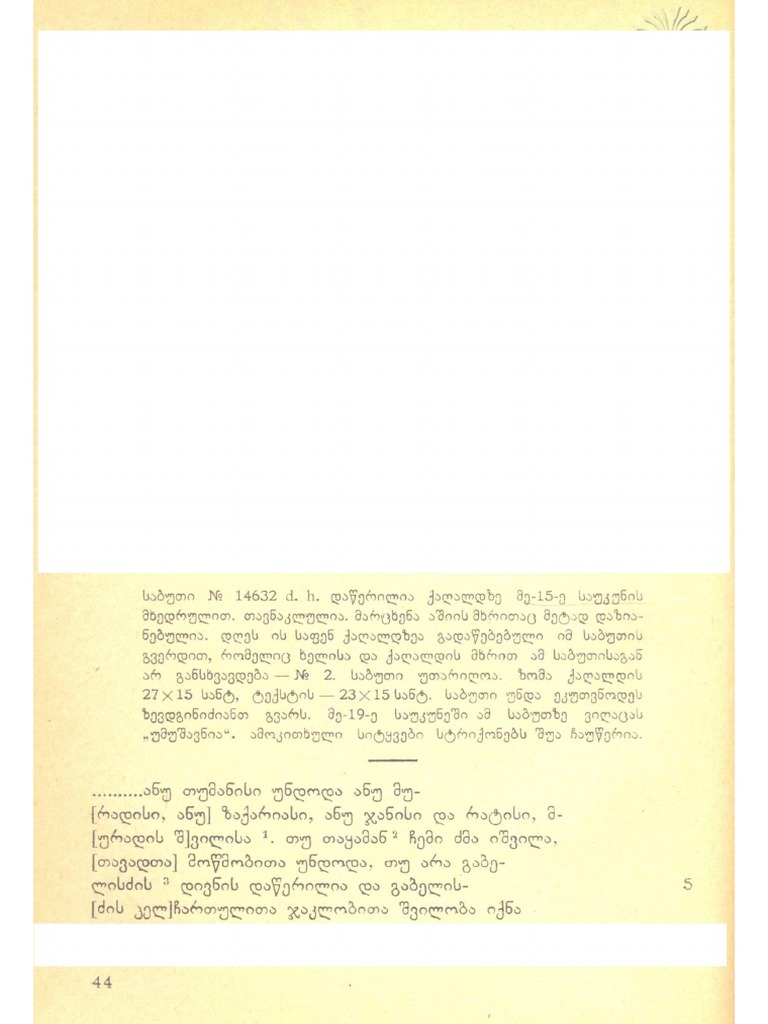 საბუთი № 14632 d. h. დაწერილია ქაღალდზე მე-15-ე საუკუნის
მხედრულით. თავნაკლულია. მარცხენა აშიის მხრითაც მეტად დაზია-
ნებულია. დღეს ის საფენ ქაღალდზეა გადაწებებული იმ საბუთის
გვერდით, რომელიც ხელისა და ქაღალდის მხრით ამ საბუთისაგან
არ განსხვავდება — № 2. საბუთი უთარიღოა. ზომა ქაღალდის
27×15 სანტ, ტექსტის — 23×15 სანტ. საბუთი უნდა ეკუთვნოდეს
ზევდგინიძიანთ გვარს. მე-19-ე საუკუნეში ამ საბუთზე ვიღაცას
„უმუშავნია“. ამოკითხული სიტყვები სტრიქონებს შუა ჩაუწერია.
..........ანუ თუმანისი უნდოდა ანუ მუ-
[რადისი, ანუ] ზაქარიასი, ანუ ჯანისი და რატისი, მ-
[ურადის შ]ვილისა ¹. თუ თაყამან ² ჩემი ძმა იშვილა,
[თავადთა] მოწმობითა უნდოდა, თუ არა გაბე-
ლისძის ³ დივნის დაწერილია და გაბელის- 5
[ძის ჴელ]ჩართულითა ჯაკლობითა შვილობა იქნა
44